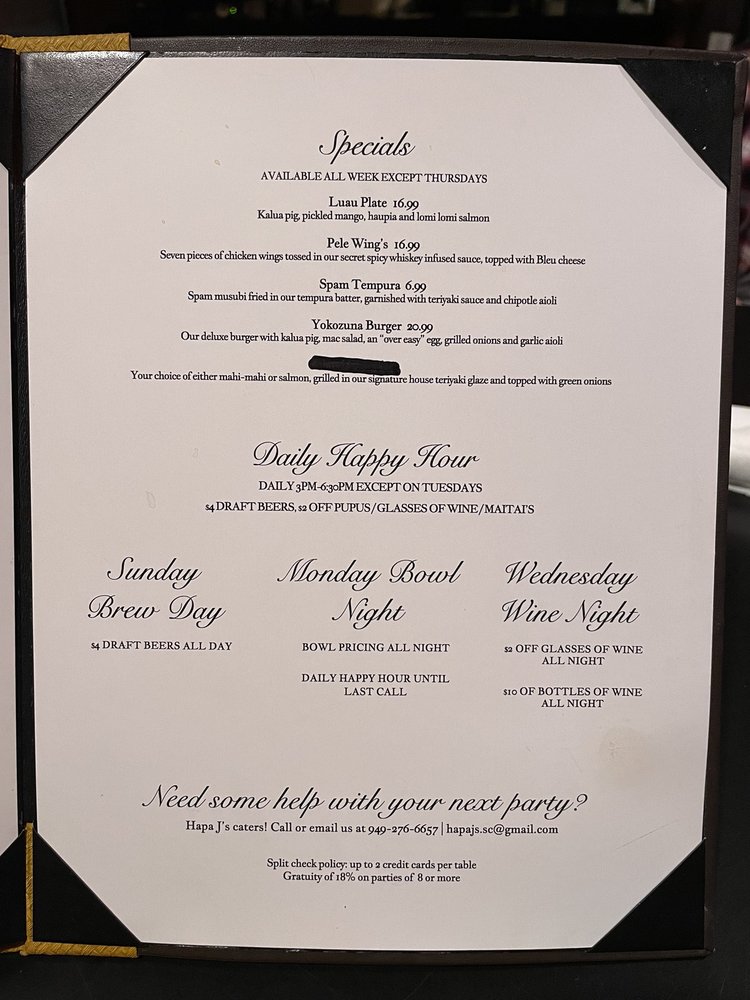 Specials
AVAILABLE ALL WEEK EXCEPT THURSDAYS
Luau Plate 16.99
Kalua pig, pickled mango, haupia and lomi lomi salmon
Pele Wing's 16.99
Seven pieces of chicken wings tossed in our secret spicy whiskey infused sauce, topped with Bleu cheese
Spam Tempura 6.99
Spam musubi fried in our tempura batter, garnished with teriyaki sauce and chipotle aioli
Yokozuna Burger 20.99
Our deluxe burger with kalua pig, mac salad, an "over easy" egg, grilled onions and garlic aioli
Your choice of either mahi-mahi or salmon, grilled in our signature house teriyaki glaze and topped with green onions
Daily Happy Hour
DAILY 3PM-6:30PM EXCEPT ON TUESDAYS
$4 DRAFT BEERS, $2 OFF PUPUS/GLASSES OF WINE/MAITAI'S
Sunday
Brew Day
$4 DRAFT BEERS ALL DAY
Monday Bowl
Night
BOWL PRICING ALL NIGHT
DAILY HAPPY HOUR UNTIL
LAST CALL
Wednesday
Wine Night
$2 OFF GLASSES OF WINE
ALL NIGHT
$10 OF BOTTLES OF WINE
ALL NIGHT
Need some help with your next party?
Hapa J's caters! Call or email us at 949-276-6657 | hapajs.sc@gmail.com
Split check policy: up to 2 credit cards per table
Gratuity of 18% on parties of 8 or more